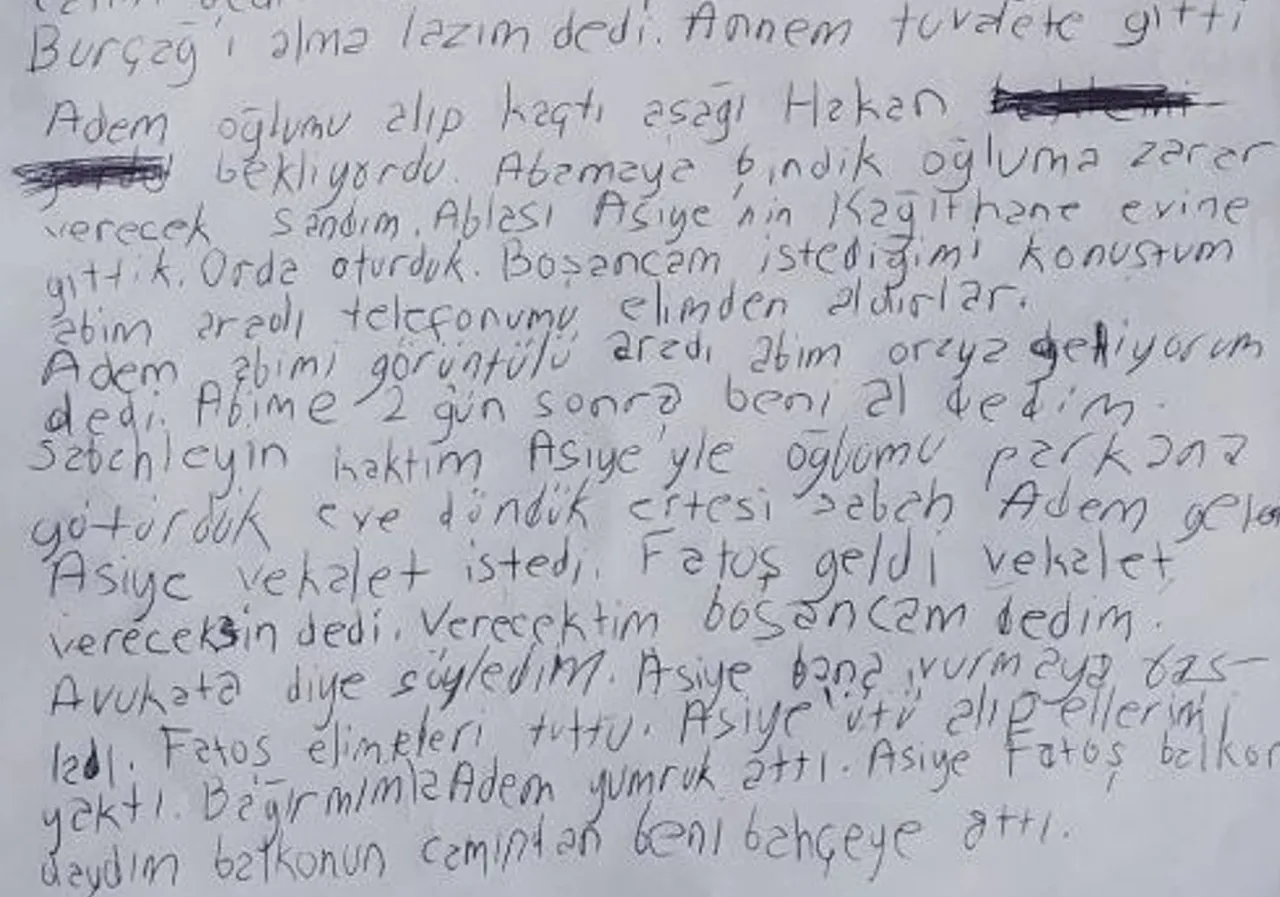 Burçağ'ı alma lazım dedi. Annem tuvalete gitti
Adem oğlumu alıp kaçtı aşağı Hakan
bekliyordu. Abamaya bindik oğluma zarar
verecek sandım. Ablası Asiye'nin Kağıthane evine
gittik. Orda oturduk. Boşancam istediğimi konuştum
abim aradı telefonumu elimden aldırlar.
Adem abimi görüntülü aradı abim oraya geliyorum
dedi. Abime 2 gün sonra beni al dedim.
Sabahleyin kaktım Asiye'yle oğlumu parkana
götürdük eve döndük ertesi sabah Adem
Asiye vekalet istedi. Fatoş geldi vekalet
vereceksin dedi. Verecektim boşancam dedim.
Avukata diye söyledim. Asiye bana vurmaya baş-
ladı. Fatos elimkleri tuttu. Asiye ütü alıp ellerimi
yaktı. Bağırmımla Adem yumruk attı. Asiye Fatoş balkon
daydım balkonun camından beni bahçeye attı.